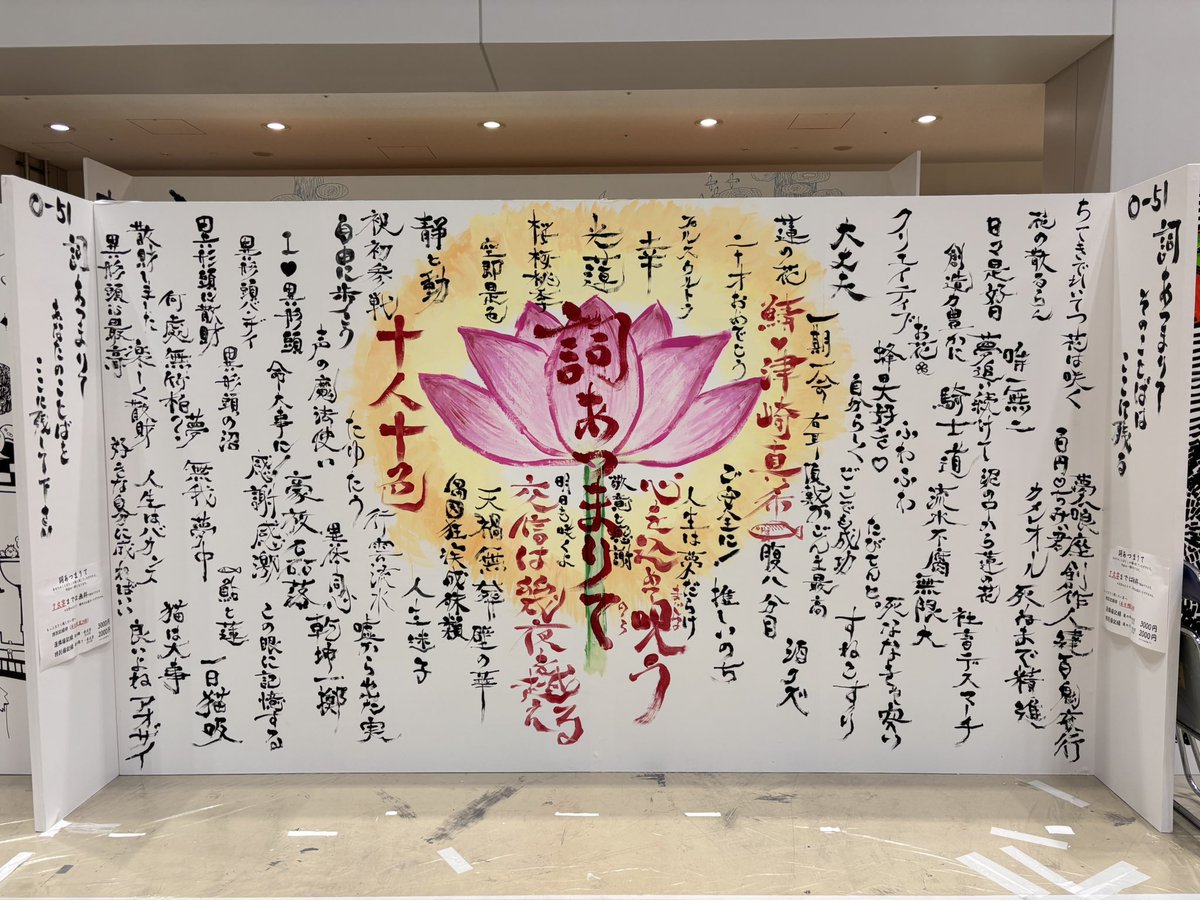 O-51
詞あつまりて
そのことばは
ここに残る
ちってきれいで
花は咲く
夢喰座
創作人達
百鬼夜行
桃の散るらん
唯一無二
カメレオール
死ぬまで精進
日々是好日
夢追い続けし
沼の中から蓮の花
創造力豊かに
騎士道
流水不腐
無限大
社畜デスマーチ
クリエイティブ
お花
蜂大好き♡
ふわふわ
たがてんと。
死ななきゃ安い
大丈夫
自分らしく
どこでも成功
すねこすり
蓮の花
一期一会
鯖♥津崎真希
腹八分目
酒クズ
二十才おめでとう
ご安全に!
推しの女
人生は夢だらけ
ゲルスタルトク
幸
心を込めて呪う
光蓮
敬意と感謝
明日も咲くよ
詞あつまりて
桜桜桃李
空即是色
交信は碧い夜を越える
静と動
天禍無辞
壁の華
偶因狂疾成殊類
祝初参戦
十人十色
行雲流水
人生迷子
自由に歩こう
たゆたう
嘘から出た実
声の魔法使い
異体同心
乾坤一擲
I♥異形頭
命大事に
豪放磊落
異形頭バンザイ
異形頭の沼
感謝感激
この眼に記憶する
異形頭に散財
夢
無我夢中
鮎と蓮
一日猫吸
何処無竹柏ノン
散財しました
楽しく散財
人生はバカンス
猫は大事
異形頭は最高
好き勝手に我ればいい
良いよね
アオザイ
O-51
詞あつまりて
あなたのことばを
ここに残して下さい
詞あつまりて
3000円
2000円
詞あつまりて
3000円
2000円